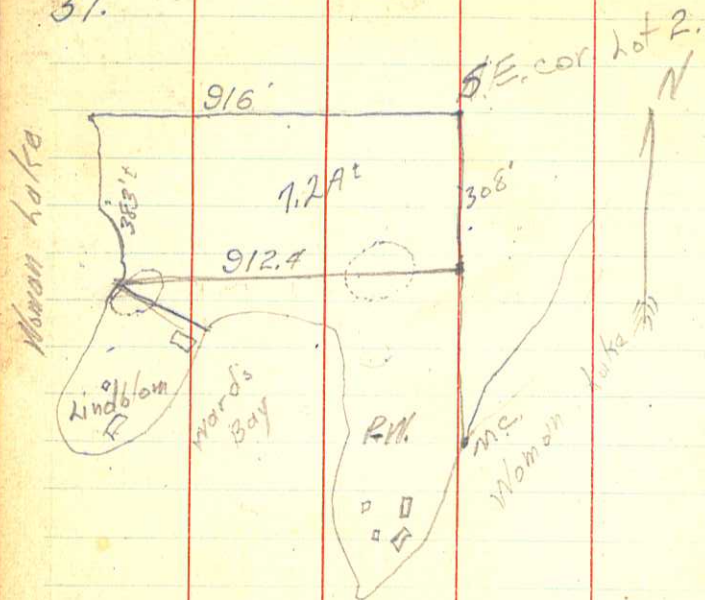 31.
S.E. cor Lot 2.
916'
N
Woman Lake
383'±
7.2 A±
308'
912.4
Lindblom
Wards
Bay
R.W.
M.C.
Woman Lake